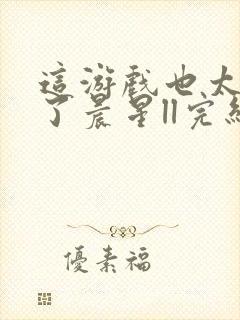 這游戲也太
了晨星||完結
優素福